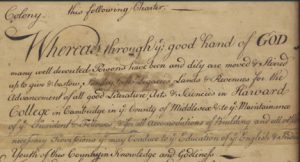 Colony. this following Charter.
Whereas through ye good hand of GOD
many well devoted Persons have been and dayly are moved & stirred
up to give & bestow Lands & Revenues for the
Advancement of all good Literature, Arts & Sciences in Harvard
College in Cambridge in ye County of Middlesex & to ye Maintainance
of ye President & Fellows & for all accommodations of Building and all other
necessary Provisions yt may Conduce to ye Education of ye English &
Youth of this Country in Knowledge and Godliness